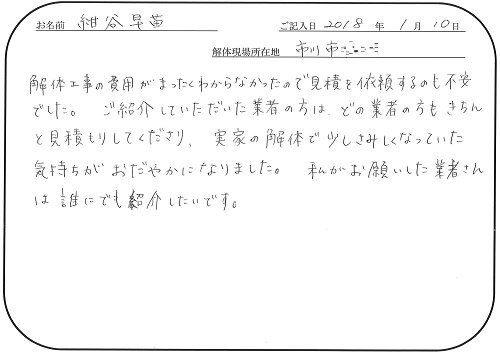 お名前 紺谷早苗 ご記入日 2018 年 1 月 10 日
解体現場所在地 市川市
解体工事の費用がまったくわからなかったので見積を依頼するのも不安
でした。 ご紹介していただいた業者の方は、どの業者の方もきちん
と見積もりしてくださり、実家の解体で少しさみしくなっていた
気持ちがおだやかになりました。 私がお願いした業者さん
は誰にでも紹介したいです。